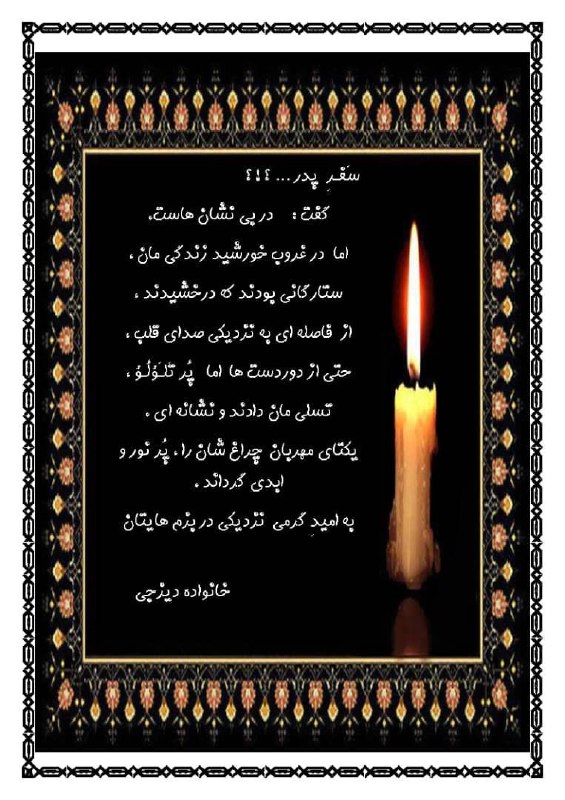 سَفَرِ پدر... ؟!؟
گفت : در پی نشان هاست،
اما در غروبِ خورشید زندگی مان ،
ستارگانی بودند که درخشیدند ،
از فاصله ای به نزدیکی صدای قلب ،
حتی از دوردست ها اما پُر تَلَؤلُؤ ،
تسلی مان دادند و نشانه ای ،
یکتای مهربان چراغ شان را ، پُر نور و
ابدی گرداند ،
به امیدِ گرمی نزدیکی در بزم هایتان
خانواده دیزجی